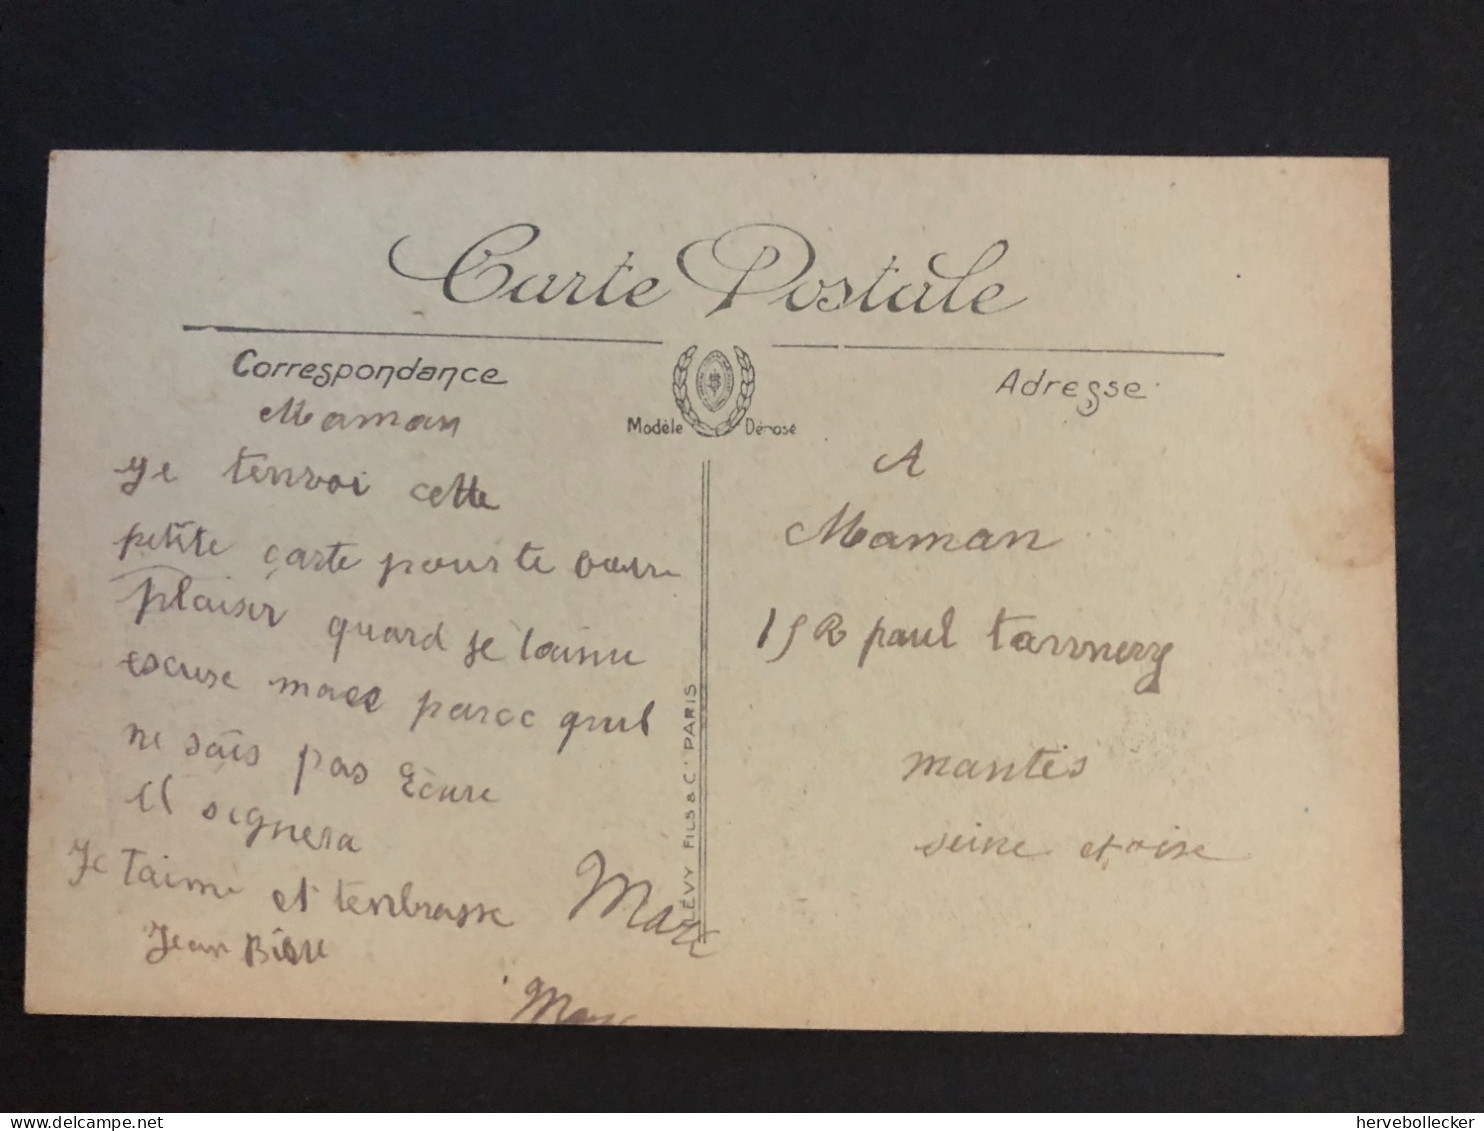 Carte Postale
Correspondance
Modèle Déposé
Adresse
Maman
je tenvoi cette
petite carte pour te
plaisir quand je
escuse marc parce quil
ne sais pas Ecure
il signera
Je taime et tenbrasse Marc
Jean
Marc
A
Maman
15 R paul tannery
mantes
seine et oise
LÉVY FILS & Cie PARIS
delcampe.net
hervebollecker